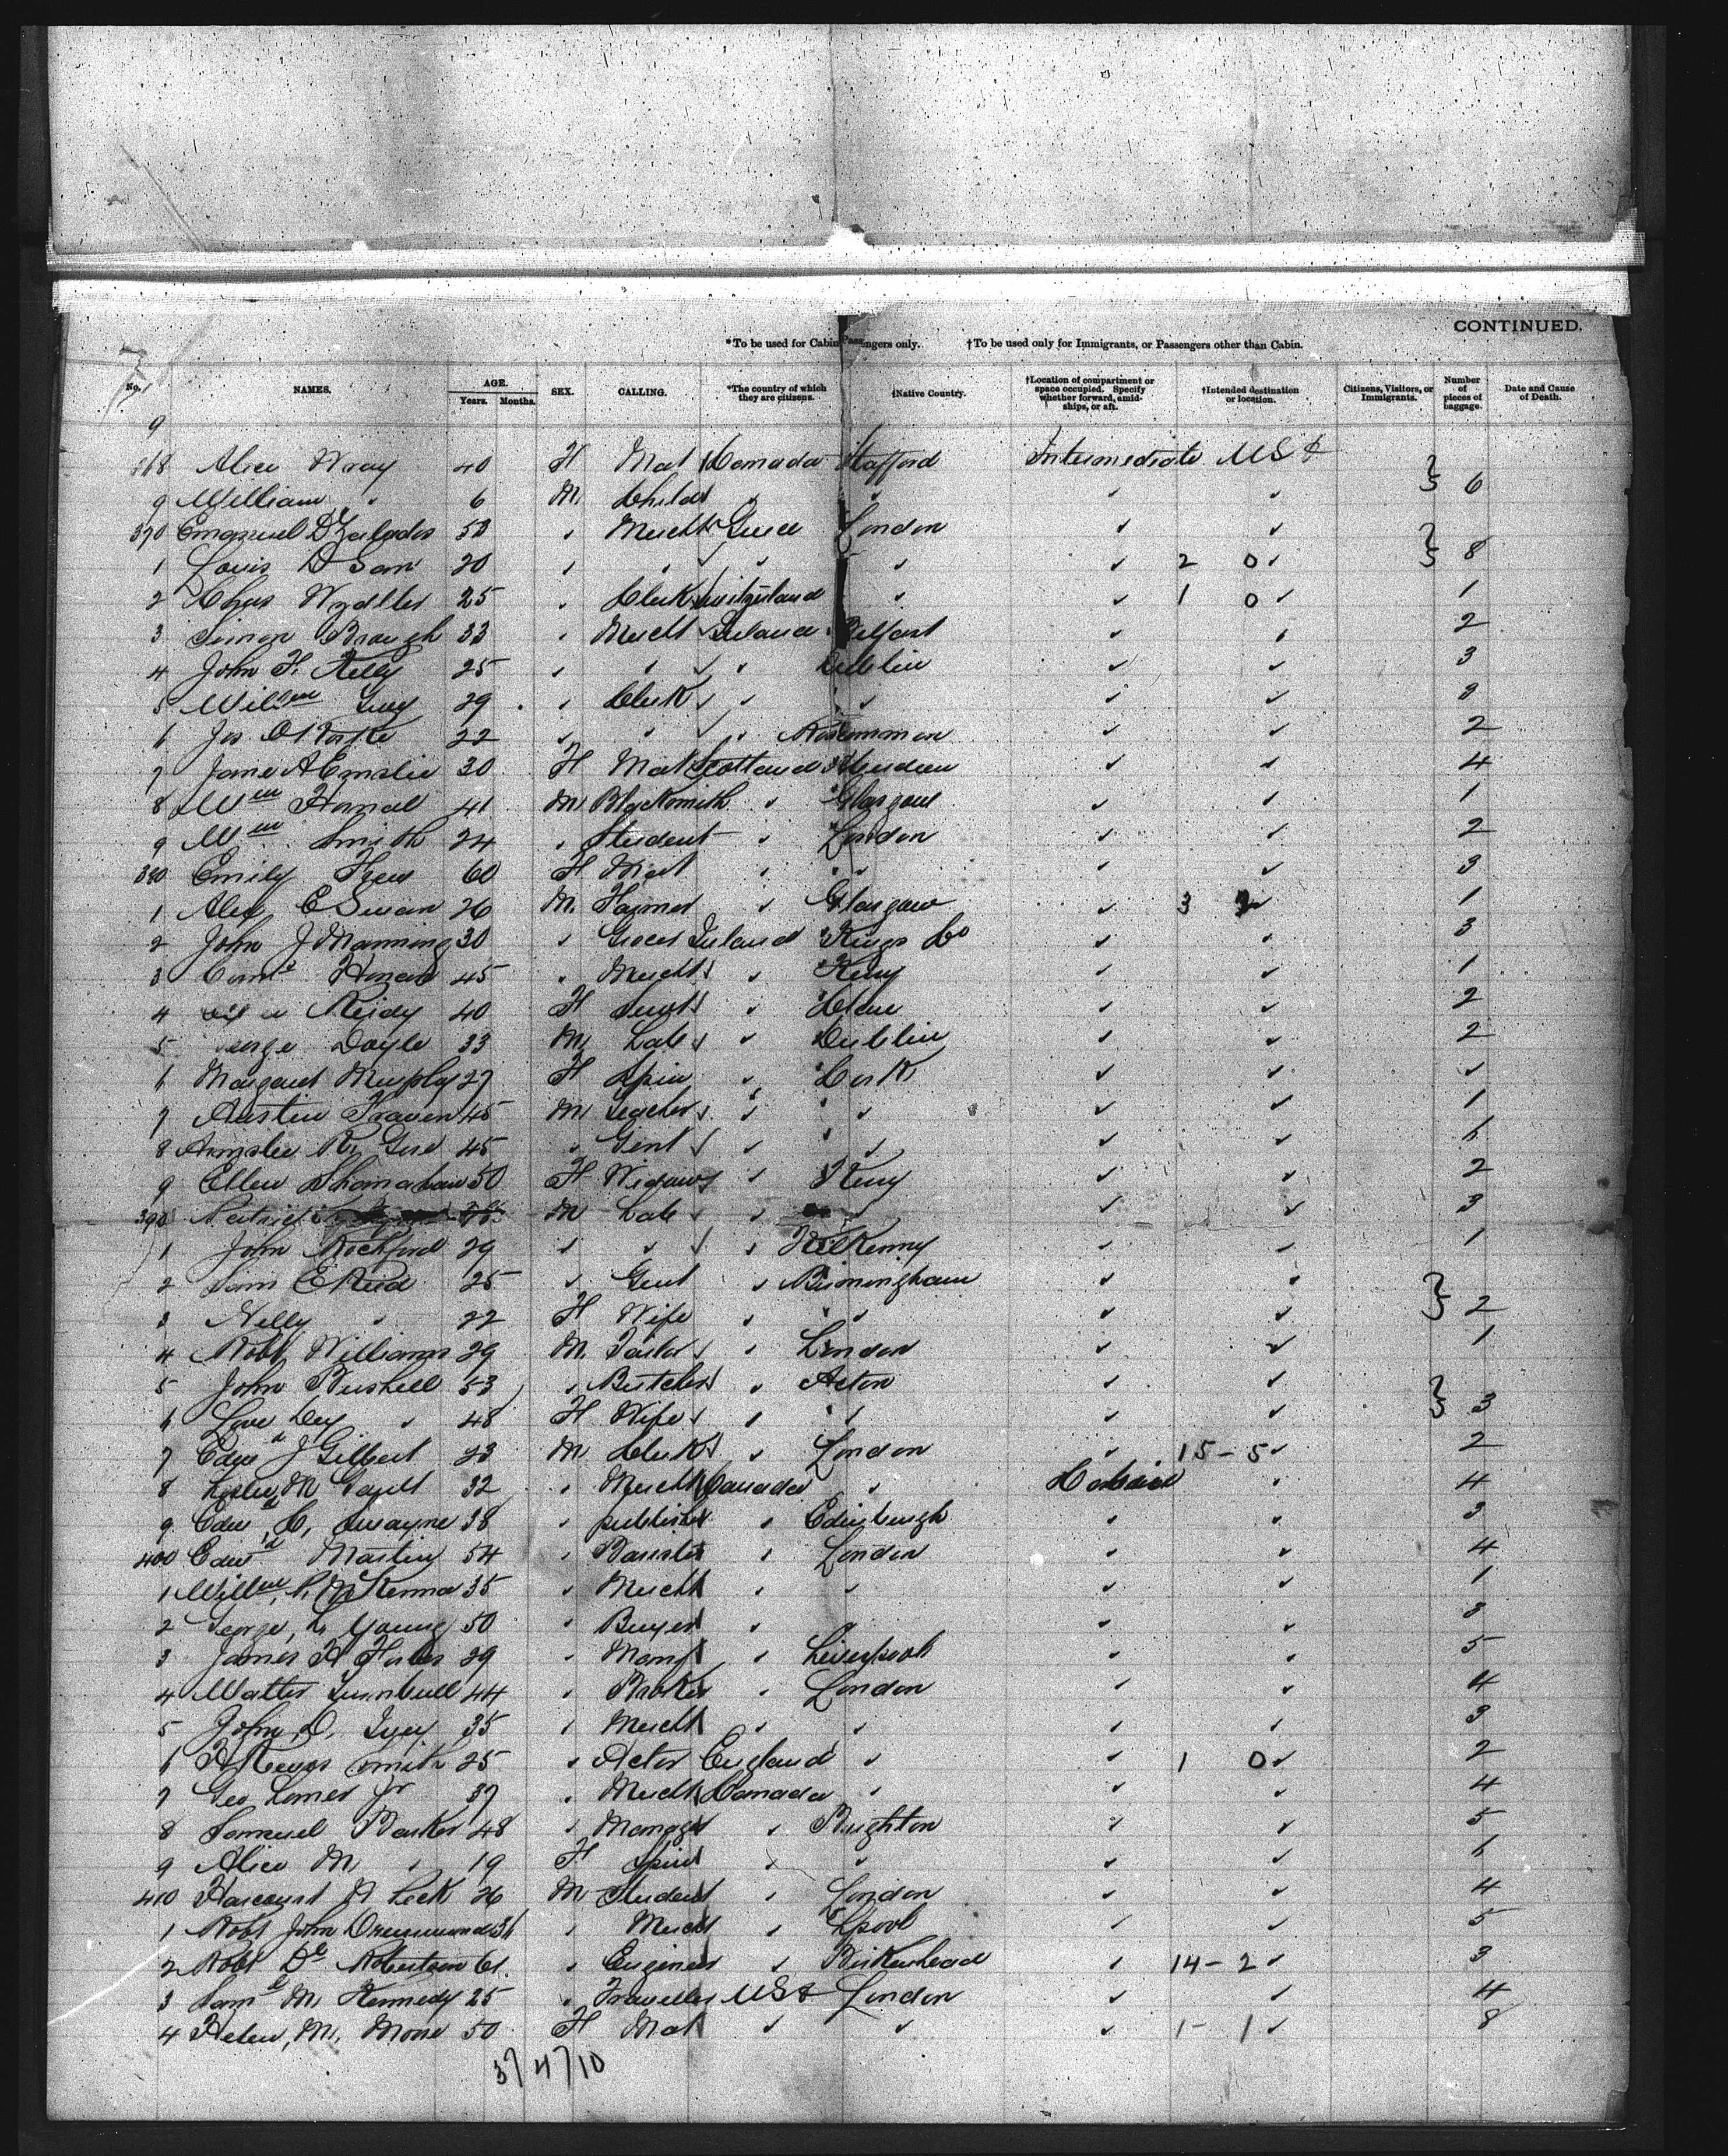 CONTINUED.
*To be used for Cabin Passengers only. †To be used only for Immigrants, or Passengers other than Cabin.
No. NAMES. AGE. Years. Months. SEX. CALLING. *The country of which they are citizens. †Native Country. †Location of compartment or space occupied. Specify whether forward, amidships, or aft. †Intended destination or location. Citizens, Visitors, or Immigrants. Number of pieces of baggage. Date and Cause of Death.
9
368 Alice Wray 40 F Mat Canada Stafford Intermediate USA
9 William " 6 M Child " " " " 6
370 Emanuel 53 " Mercht Greece London " "
1 Louis D San 20 " " " " " 2 0 " 8
2 Chas 25 " Clerk Switzerland " " 1 0 " 1
3 Simon Brough 33 " Mercht Ireland Belfast " " 2
4 John F. Kelly 25 " " " Dublin " " 3
5 Willm 29 " Clerk " " " " 3
6 Jas O'Rorke 22 " " " Roscommon " " 2
7 Jane A Emslie 30 F Mat Scotland Aberdeen " " 4
8 Wm 41 M Blacksmith " Glasgow " " 1
9 Wm Smith 24 " Student " London " " 2
380 Emily 60 F Mat " " " " 3
1 Alex E Swan 26 M Farmer " Glasgow " 3 " 1
2 John J Manning 30 " Grocer Ireland Kings Co " " 3
3 45 " Mercht " Kerry " " 1
4 Reidy 40 F Servt " Clare " " 2
5 George Doyle 33 M Lab " Dublin " " 2
6 Margaret Murphy 27 F Spin " Cork " " "
7 Austin 45 M Teacher " " " " 1
8 45 " Gent " " " " 6
9 Ellen Shanahan 50 F Widow " Kerry " " 2
390 Patrick M Lab " " " 3
1 John Rochford 29 " " " Kilkenny " " 1
2 Sam E Reid 25 " Gent " Birmingham " "
3 Nelly " 22 F Wife " " " " 2
4 Robt Williams 29 M Tailor " London " " 1
5 John Bushell 53 " Butcher " Acton " "
6 " 48 F Wife " " " " 3
7 Edwd J Gilbert 23 M Clerk " London " 15-5 " 2
8 Leslie M Gault 32 " Mercht Canada " Cabin " 4
9 Edwd C, Swayne 38 " publisher " Edinburgh " " 3
400 Edwd Martin 54 " Barister " London " " 4
1 Willm McKenna 35 " Mercht " " " " 1
2 George, L Young 50 " Buyer " " " " 3
3 James H 29 " Mangr " Liverpool " " 5
4 Walter Turnbull 44 " Broker " London " " 4
5 John D. Ivey 35 " Mercht " " " " 3
6 H Reeves Smith 25 " Actor England " " 1 0 " 2
7 Geo Lomer Jr 37 " Mercht Canada " " " 4
8 Samuel Barker 48 " Manager " Brighton " " 5
9 Alice M " 19 F Spin " " " " 6
410 Harcourt Leck 26 M Student " London " " 4
1 Robt John Drummond 36 " Mercht " Lpool " " 5
2 Robt Robertson 61 " Engineer " Birkenhead " 14-2 " 3
3 Saml M. Kennedy 25 " Traveller USA London " " 4
4 Helen, M. Morse 50 F Mat " " " 1-1 " 8
37/4/10